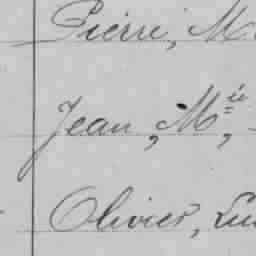 Pierre, M
Jean, M.ie,
Olivier, Lu